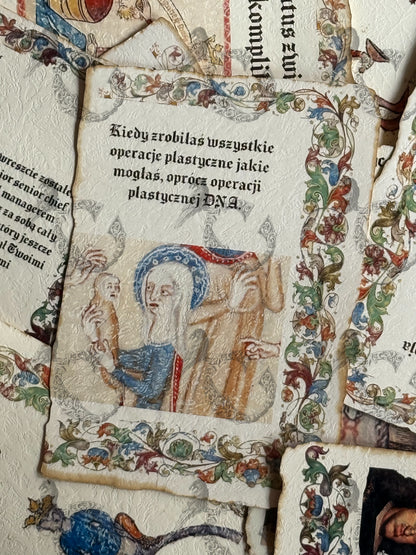 tus zwi
kompli
Kiedy zrobiłaś wszystkie
operacje plastyczne jakie
mogłaś, oprócz operacji
plastycznej DNA.
wreszcie zostałe
ior senior chief
l managerem
za sobą cały
tóry jeszcze
ył Twoimi
mi